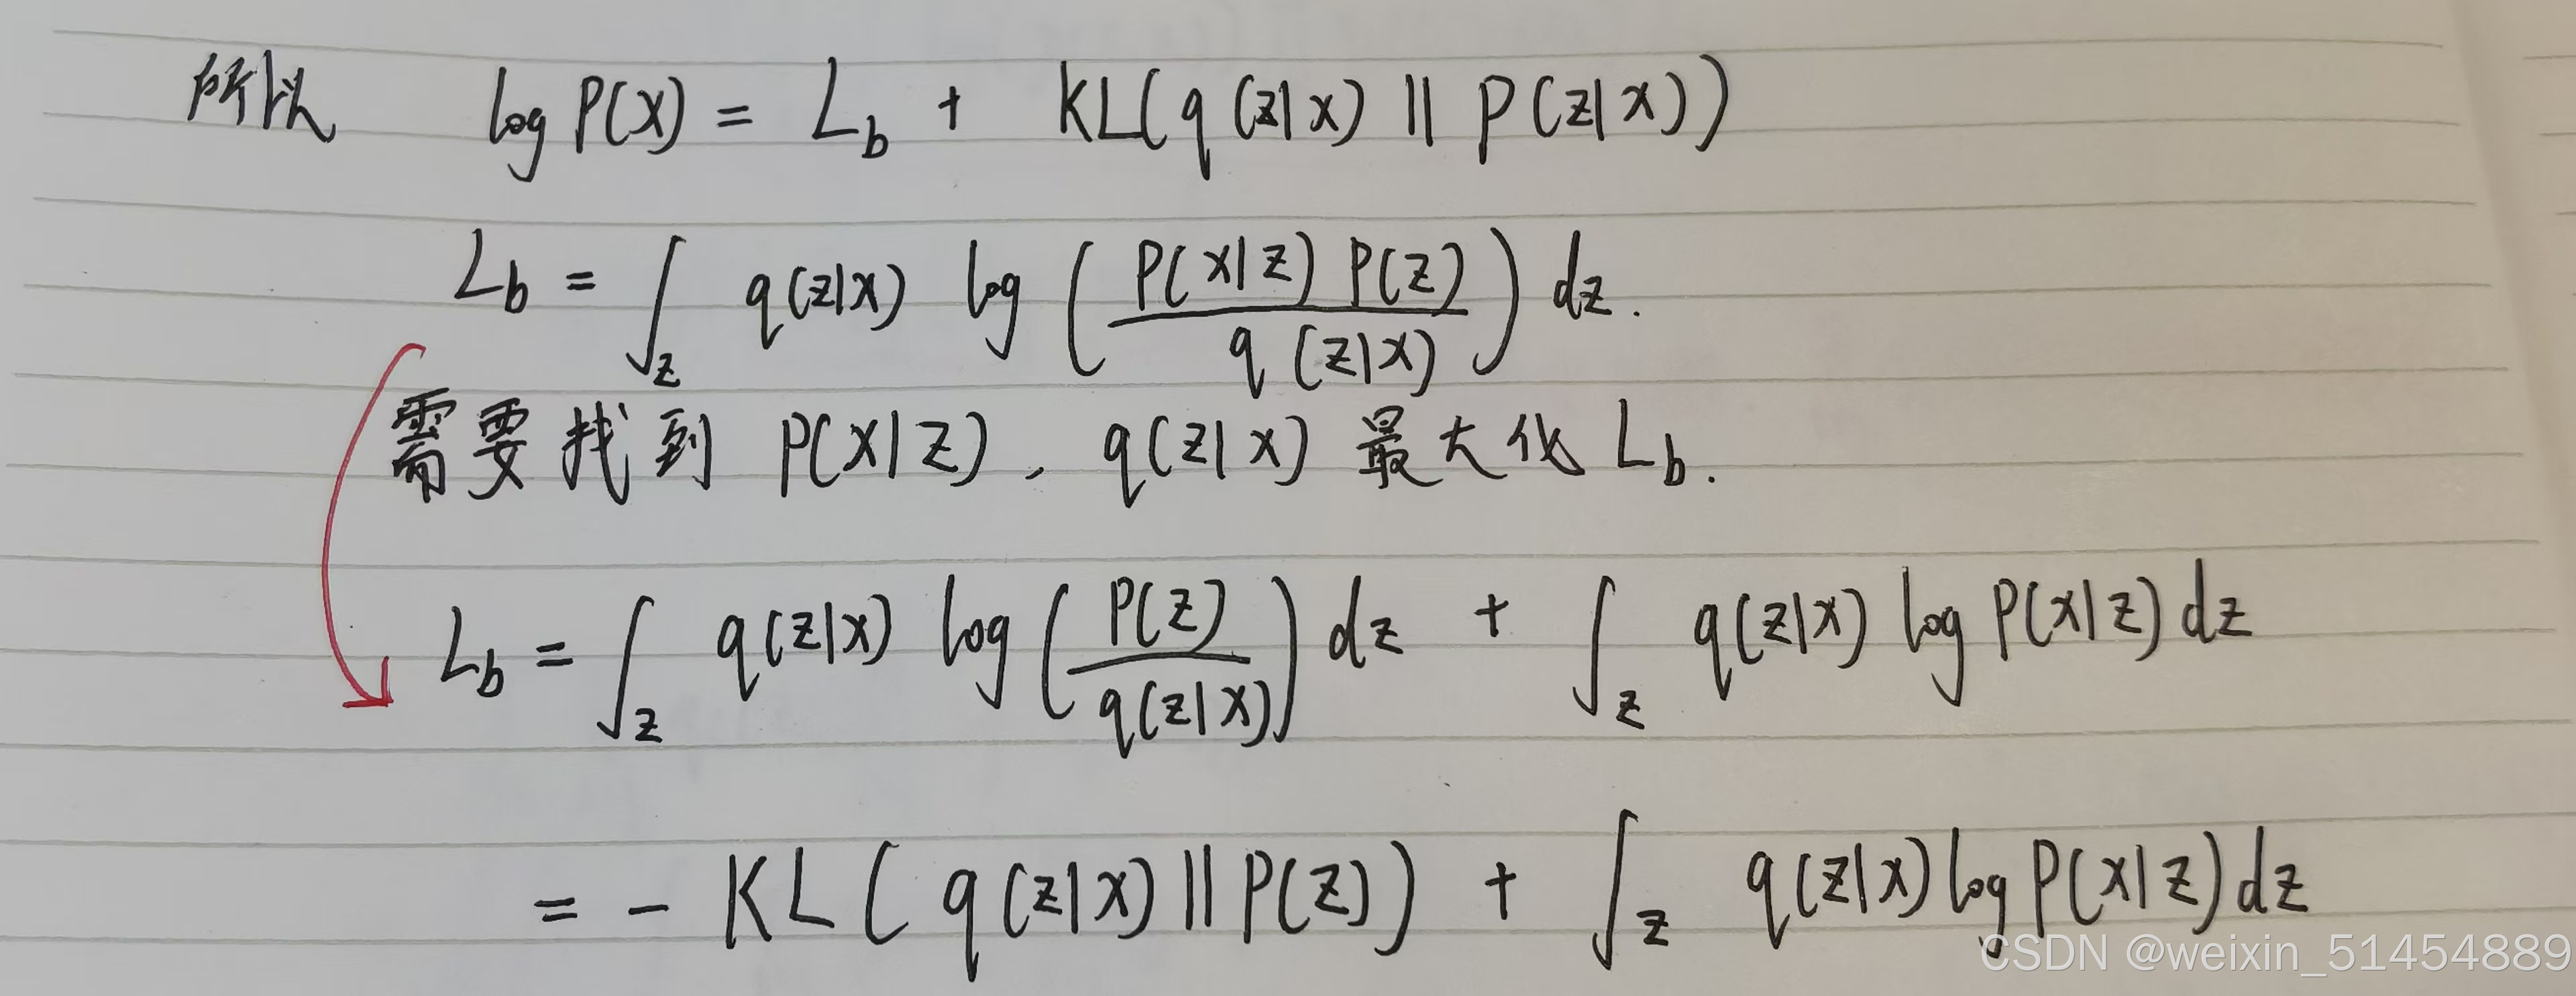 所以 log P(X) = L_b + KL(q(z|x) || P(z|x))
L_b = ∫_z q(z|x) log ( P(x|z) P(z) / q(z|x) ) dz.
需要找到 P(x|z)、q(z|x) 最大化 L_b.
L_b = ∫_z q(z|x) log ( P(z) / q(z|x) ) dz + ∫_z q(z|x) log P(x|z) dz
= - KL ( q(z|x) || P(z) ) + ∫_z q(z|x) log P(x|z) dz
CSDN @weixin_51454889